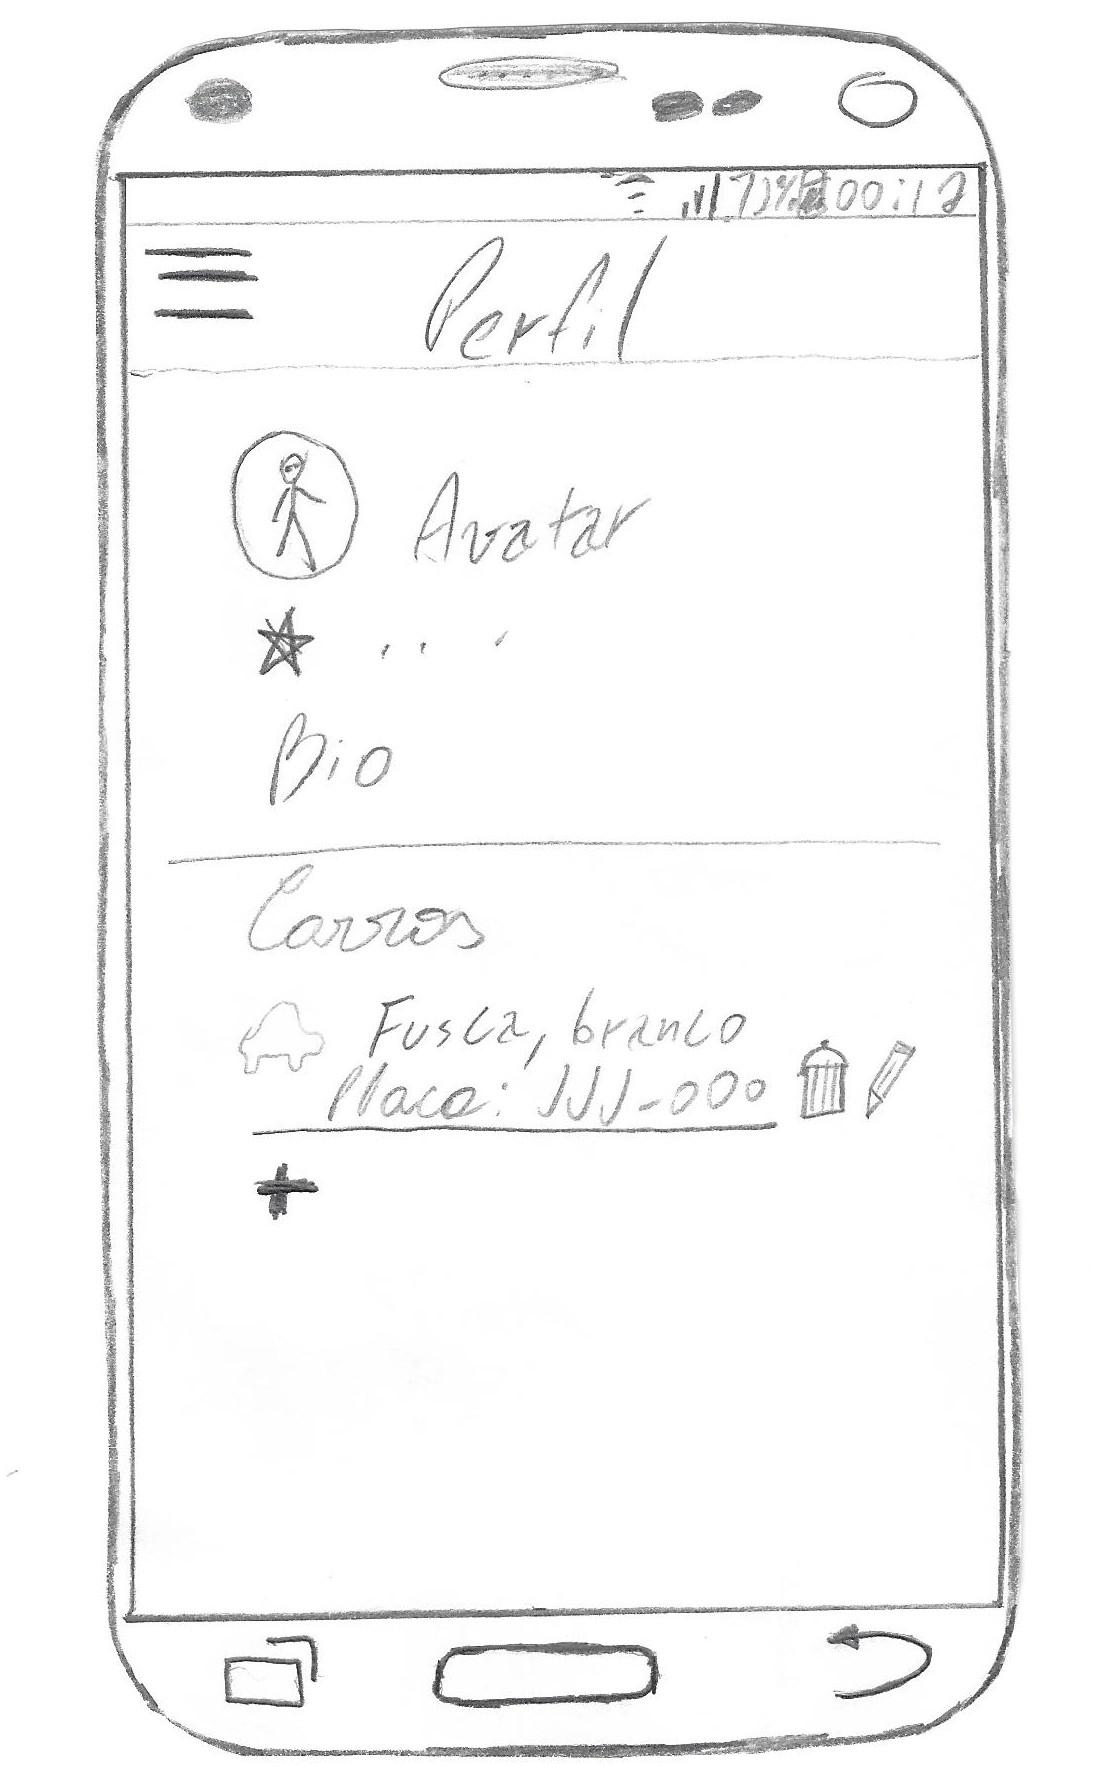 00:12
Perfil
Avatar
Bio
Carros
Fusca, branco
Placa: JJJ-000
+